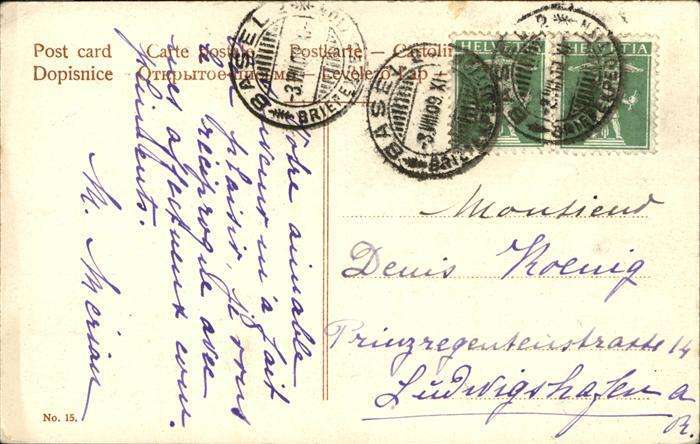 Post card — Carte postale — Postkarte — Cartolina
Dopisnice — Открытое письмо — Levelező-Lap
BASEL
-3.VIII.09.XI
BRIEFEXPED.
BASEL
BRIEFEXPED.
BASEL
HELVETIA
HELVETIA
Votre aimable
m'a fait
plaisir, je vous
réciproque avec
mes affectueux com-
pliments.
M. Merian
Monsieur
Denis Koenig
Prinzregentenstrasse 14
Ludwigshafen a
R.
No. 15.